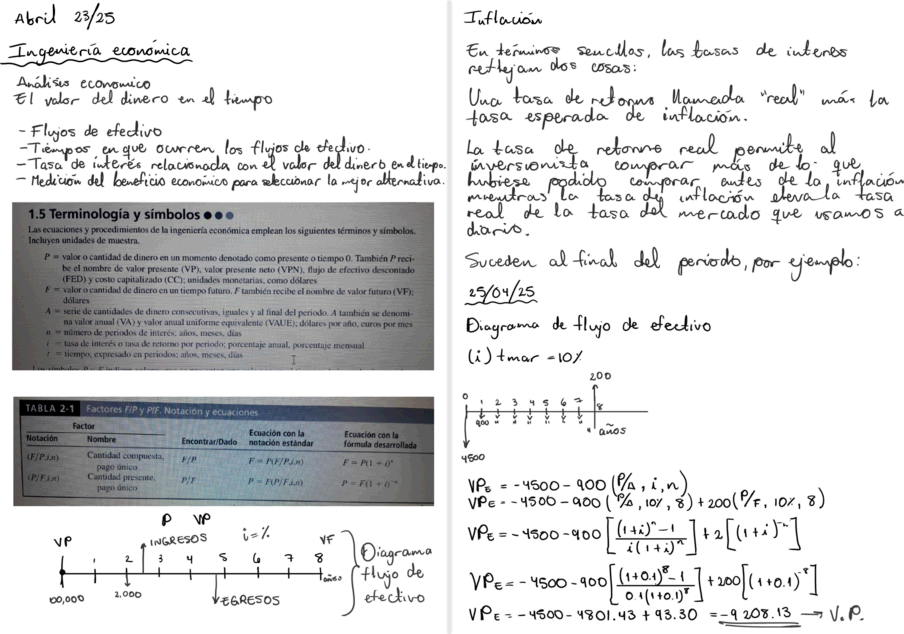 Abril 23/25
Ingeniería económica
Análisis economico
El valor del dinero en el tiempo
- Flujos de efectivo
- Tiempos en que ocurren los flujos de efectivo.
- Tasa de interés relacionada con el valor del dinero en el tiempo.
- Medición del beneficio económico para seleccionar la mejor alternativa.
1.5 Terminología y símbolos
Las ecuaciones y procedimientos de la ingeniería económica emplean los siguientes términos y símbolos.
Incluyen unidades de muestra.
P = valor o cantidad de dinero en un momento denotado como presente o tiempo 0. También P reci-
be el nombre de valor presente (VP), valor presente neto (VPN), flujo de efectivo descontado
(FED) y costo capitalizado (CC); unidades monetarias, como dólares
F = valor o cantidad de dinero en un tiempo futuro. F también recibe el nombre de valor futuro (VF);
dólares
A = serie de cantidades de dinero consecutivas, iguales y al final del periodo. A también se denomi-
na valor anual (VA) y valor anual uniforme equivalente (VAUE); dólares por año, euros por mes
n = número de periodos de interés; años, meses, días
i = tasa de interés o tasa de retorno por periodo; porcentaje anual, porcentaje mensual
t = tiempo, expresado en periodos; años, meses, días
TABLA 2-1 Factores F/P y P/F. Notación y ecuaciones
Factor
Notación Nombre Encontrar/Dado Ecuación con la notación estándar Ecuación con la fórmula desarrollada
(F/P,i,n) Cantidad compuesta, pago único F/P F = P(F/P,i,n) F = P(1 + i)ⁿ
(P/F,i,n) Cantidad presente, pago único P/F P = F(P/F,i,n) P = F(1 + i)⁻ⁿ
P VP
VP INGRESOS i=% VF
1 2 3 4 5 6 7 8
años
100,000 2,000 EGRESOS
Diagrama
flujo de
efectivo
Inflación
En términos sencillos, las tasas de interes
reflejan dos cosas:
Una tasa de retorno llamada "real" más la
tasa esperada de inflación.
La tasa de retorno real permite al
inversionista comprar más de lo que
hubiese podido comprar antes de la inflación
mientras la tasa de inflación eleva la tasa
real de la tasa del mercado que usamos a
diario.
Suceden al final del periodo, por ejemplo:
25/04/25
Diagrama de flujo de efectivo
(i) tmar = 10%
200
0 1 2 3 4 5 6 7 8
900 años
4500
VPE = -4500 - 900 (P/A, i, n)
VPE = -4500 - 900 (P/A, 10%, 8) + 200 (P/F, 10%, 8)
VPE = -4500 - 900 [(1+i)ⁿ - 1 / i(1+i)ⁿ] + 2 [(1+i)⁻ⁿ]
VPE = -4500 - 900 [(1+0.1)⁸ - 1 / 0.1(1+0.1)⁸] + 200 [(1+0.1)⁻⁸]
VPE = -4500 - 4801.43 + 93.30 = -9 208.13 → V.P.